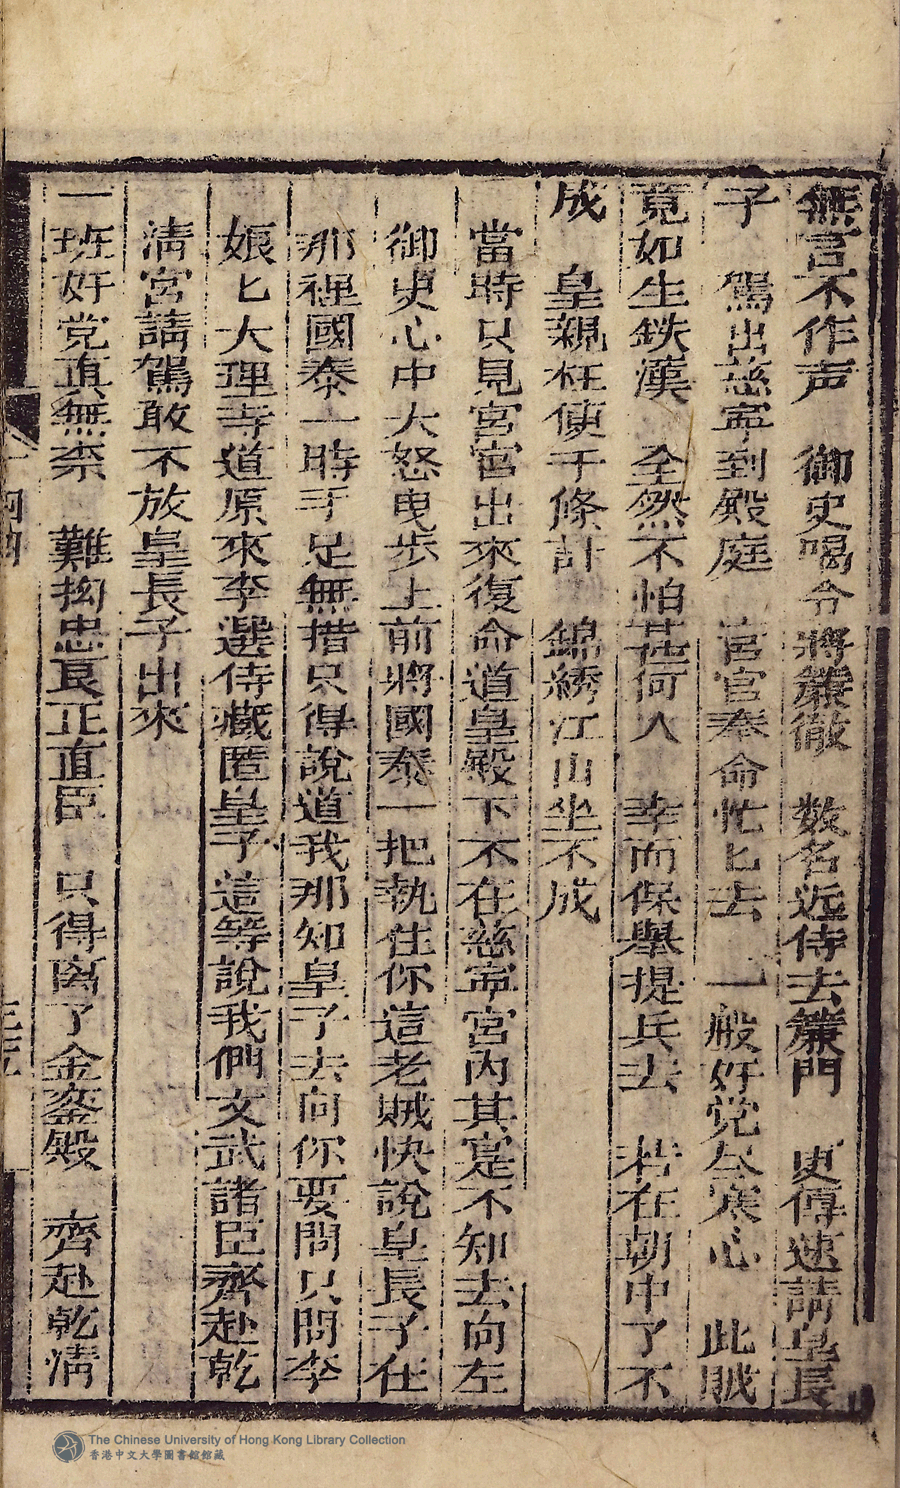 無言不作声　御史喝令將簾徹　数名近侍去簾門　更傳速請皇長
子　駕出慈寧到殿庭　宮官奉命忙匕去　一般奸党尽寒心　此賊
竟如生鉄漢　全然不怕甚何人　幸而保舉提兵去　若在朝中了不
成　皇親枉使千條計　錦綉江山坐不成
當時只見宮官出來復命道皇殿下不在慈寧宮內其寔不知去向左
御史心中大怒曳步上前將國泰一把執住你這老賊快說皇長子在
那裡國泰一時手足無措只得說道我那知皇子去向你要問只問李
娘匕大理寺道原來李選侍藏匿皇子這等說我們文武諸臣齊赴乾
淸宮請駕敢不放皇長子出來
一班奸党真無柰　難拗忠良正直臣　只得离了金鑾殿　齊赴乾淸
The Chinese University of Hong Kong Library Collection
香港中文大學圖書館館藏